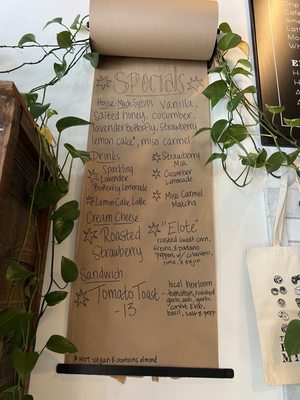 Specials
House Made Syrups: vanilla,
salted honey, cucumber,
lavender butterfly, strawberry
lemon cake*, miso carmel
Drinks
Sparkling
Lavender
Butterfly Lemonade
Lemon Cake Latte
Strawberry
Milk
Cucumber
Lemonade
Miso Carmel
Matcha
Cream Cheese
Roasted
Strawberry
"Elote"
roasted sweet corn,
fresno, & poblano
peppers w/ cilantro,
lime, & tajin
Sandwich
Tomato Toast
- 13
local heirloom
tomatoes, roasted
garlic aioli, garlic
confit EVOO,
basil, salt & pepp
* NOT vegan & contains almond